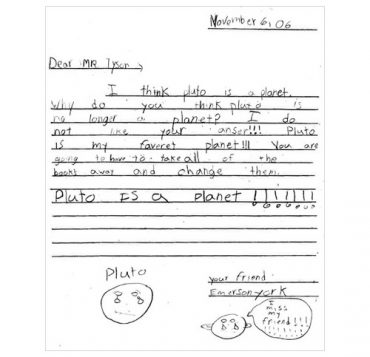 November 6, 06
Dear MR. Tyson,
I think pluto is a planet.
Why do you think pluto is
no longer a planet? I do
not like your anser!!! Pluto
is my faveret planet!!! You are
going to have to take all of the
books away and change them.
Pluto IS a planet !!!!!!!
Pluto
your friend
Emerson york
I
miss
my
friend!
!!!!!
!!!